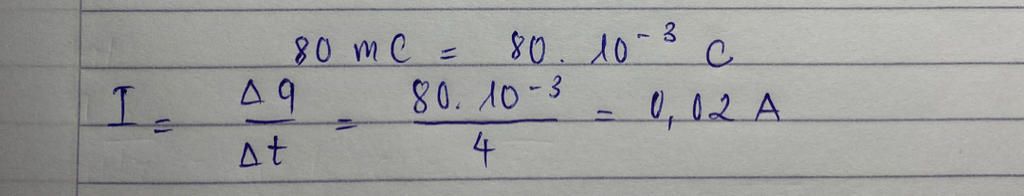 80 mC = 80. 10⁻³ C
I = Δq/Δt = 80. 10⁻³/4 = 0,02 A